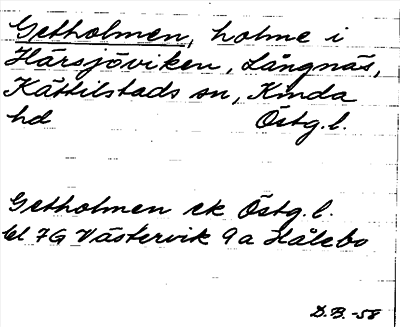 Getholmen, holme i
Härsjöviken, Långnäs,
Kättilstads sn, Kinda
hd Östg. l.
Getholmen ek Östg. l.
bl 7G Västervik 9a Hålebo
D.B. -58